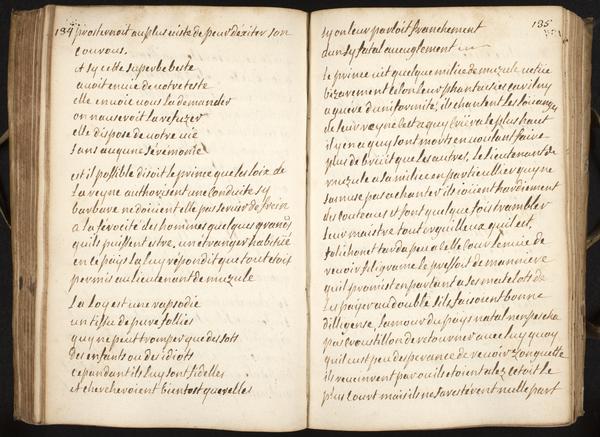 134
prosternoit au plus viste de peur dexiter son
courous.
et sy cette superbe beste
avoit envie de votre teste
elle envoie vous la demander
on nauseroit la refuzer
elle dispose de votre vie
sans aucune seremonie
est il possible disoit le prince que les loix de
la reyne authorisent une conduite sy
barbare ne doivent elle pas servir de frein
a la ferocité des homines quelques grands
quils puissent estre, un etranger habitué
en ce païs la luy repondit que tout etoit
permis au lieutenant de muzule
La loy est une rapsodie
un tissu de pure follies
quy ne peut tromper que des sots
des enfants ou des idiots
cependant ils luy sont fidelles
et chercheroient bientost querelles
135
sy on leur parloit franchement
dun sy fatal aveuglement
le prince vit quelque milice de muzule vetue
bizarement selon leur phantaisies car il ny
a guere duniformité, ils chantent les louanges
de leur reyne cest a quy criëra le plus haut
il y en a quy sont morts en voulant faire
plus de bruit que les autres, le lieutenant de
muzule a sa milice en particullier quy ne
samuse pas a chanter ils joüent hardiment
des couteaux et font quelque fois trambler
leur maistre tout orguilleux quil est,
folichon et tarda peu a celle cour lenvie de
revoir filigrame le pressoit de manniere
quil promist en parlant a ses matelots de
les païer au double sils faisoient bonne
dilligense, lamour du païs natal nempescha
pas croustillon de retourner avec luy quoy
quil eust peu desperance de revoir zonquette
ils revinrent par ou ils etoient alez cetoit le
plus court mais ils ne saresterent nulle part